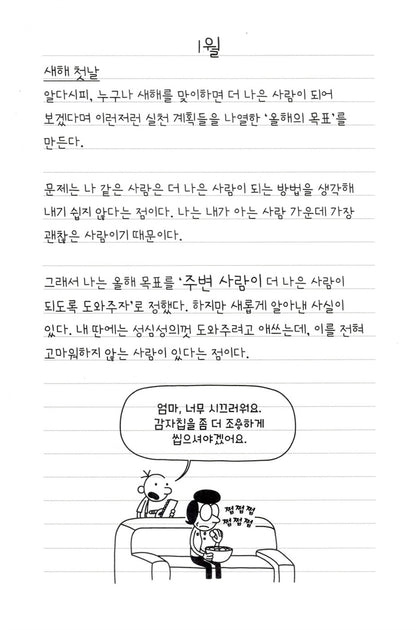 1월
새해 첫날
알다시피, 누구나 새해를 맞이하면 더 나은 사람이 되어
보겠다며 이런저런 실천 계획들을 나열한 '올해의 목표'를
만든다.
문제는 나 같은 사람은 더 나은 사람이 되는 방법을 생각해
내기 쉽지 않다는 점이다. 나는 내가 아는 사람 가운데 가장
괜찮은 사람이기 때문이다.
그래서 나는 올해 목표를 '주변 사람이 더 나은 사람이
되도록 도와주자'로 정했다. 하지만 새롭게 알아낸 사실이
있다. 내 딴에는 성심성의껏 도와주려고 애쓰는데, 이를 전혀
고마워하지 않는 사람이 있다는 점이다.
엄마, 너무 시끄러워요.
감자칩을 좀 더 조용하게
씹으셔야겠어요.
쩝쩝쩝
쩝쩝쩝